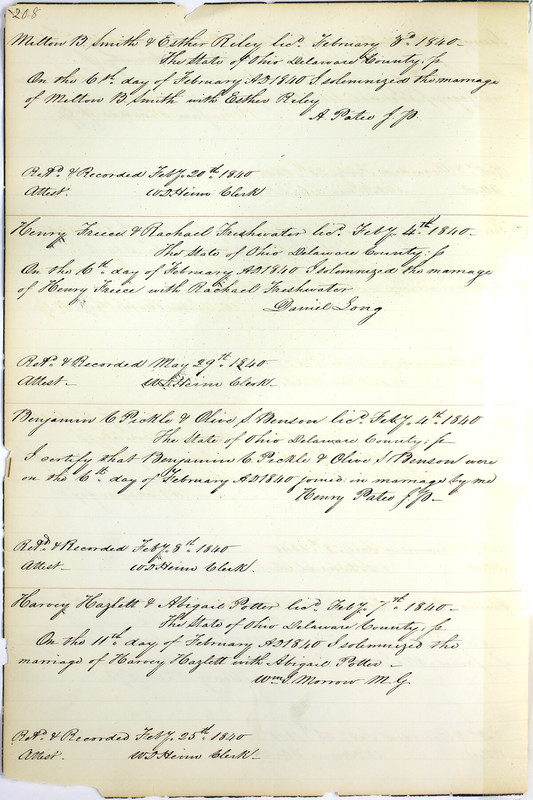 208
Milton B Smith & Esther Riley licd. February 3d. 1840–
The State of Ohio Delaware County; ss
On the 6th. day of February AD 1840 I solemnized the marrage
of Milton B. Smith with Esther Riley
A Pates J. P.
Retd. & Recorded Feby. 20th. 1840
Attest. Clerk
Henry Freece & Rachael Freshwater licd. Feby. 4th. 1840–
The State of Ohio Delaware County; ss
On the 6th. day of February AD 1840 I solemnized the marrage
of Henry Freece with Rachael Freshwater
Daniel Long
Retd. & Recorded May 29th. 1840
Attest– Clerk
Benjamin C Pickle & Olive S. Benson licd. Feby. 4th. 1840
The State of Ohio Delaware County; ss
I certify that Benjamin C. Pickle & Olive S Benson were
on the 6th. day of February AD 1840 joined in marriage by me
Henry Pates J. P–
Retd. & Recorded Feby. 8th. 1840
Attest– Clerk.
Harvey Hazlett & Abigail Potter licd. Feby. 7th. 1840–
The State of Ohio Delaware County; ss
On the 11th. day of February AD 1840 I solemnized the
marriage of Harvey Hazlett with Abigail Potter–
Wm. S. Morrow M. G.
Retd. & Recorded Feby. 25th. 1840
Attest. Clerk–